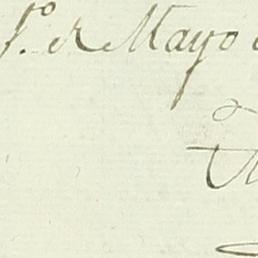 1.º de Mayo